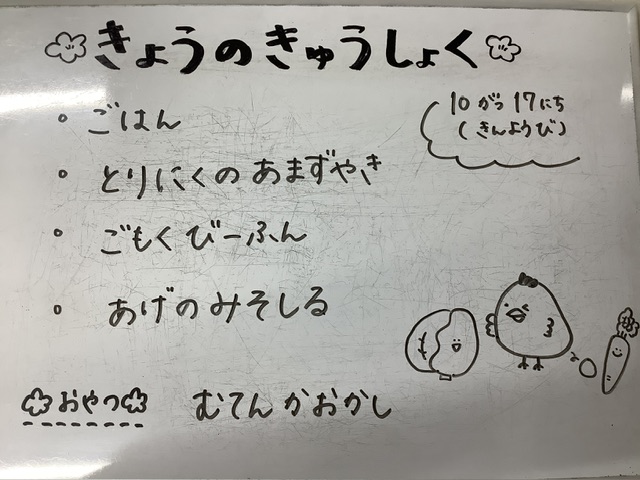 きょうのきゅうしょく
10がつ17にち
(きんようび)
ごはん
とりにくのあまずやき
ごもくびーふん
あげのみそしる
おやつ むてんかおかし